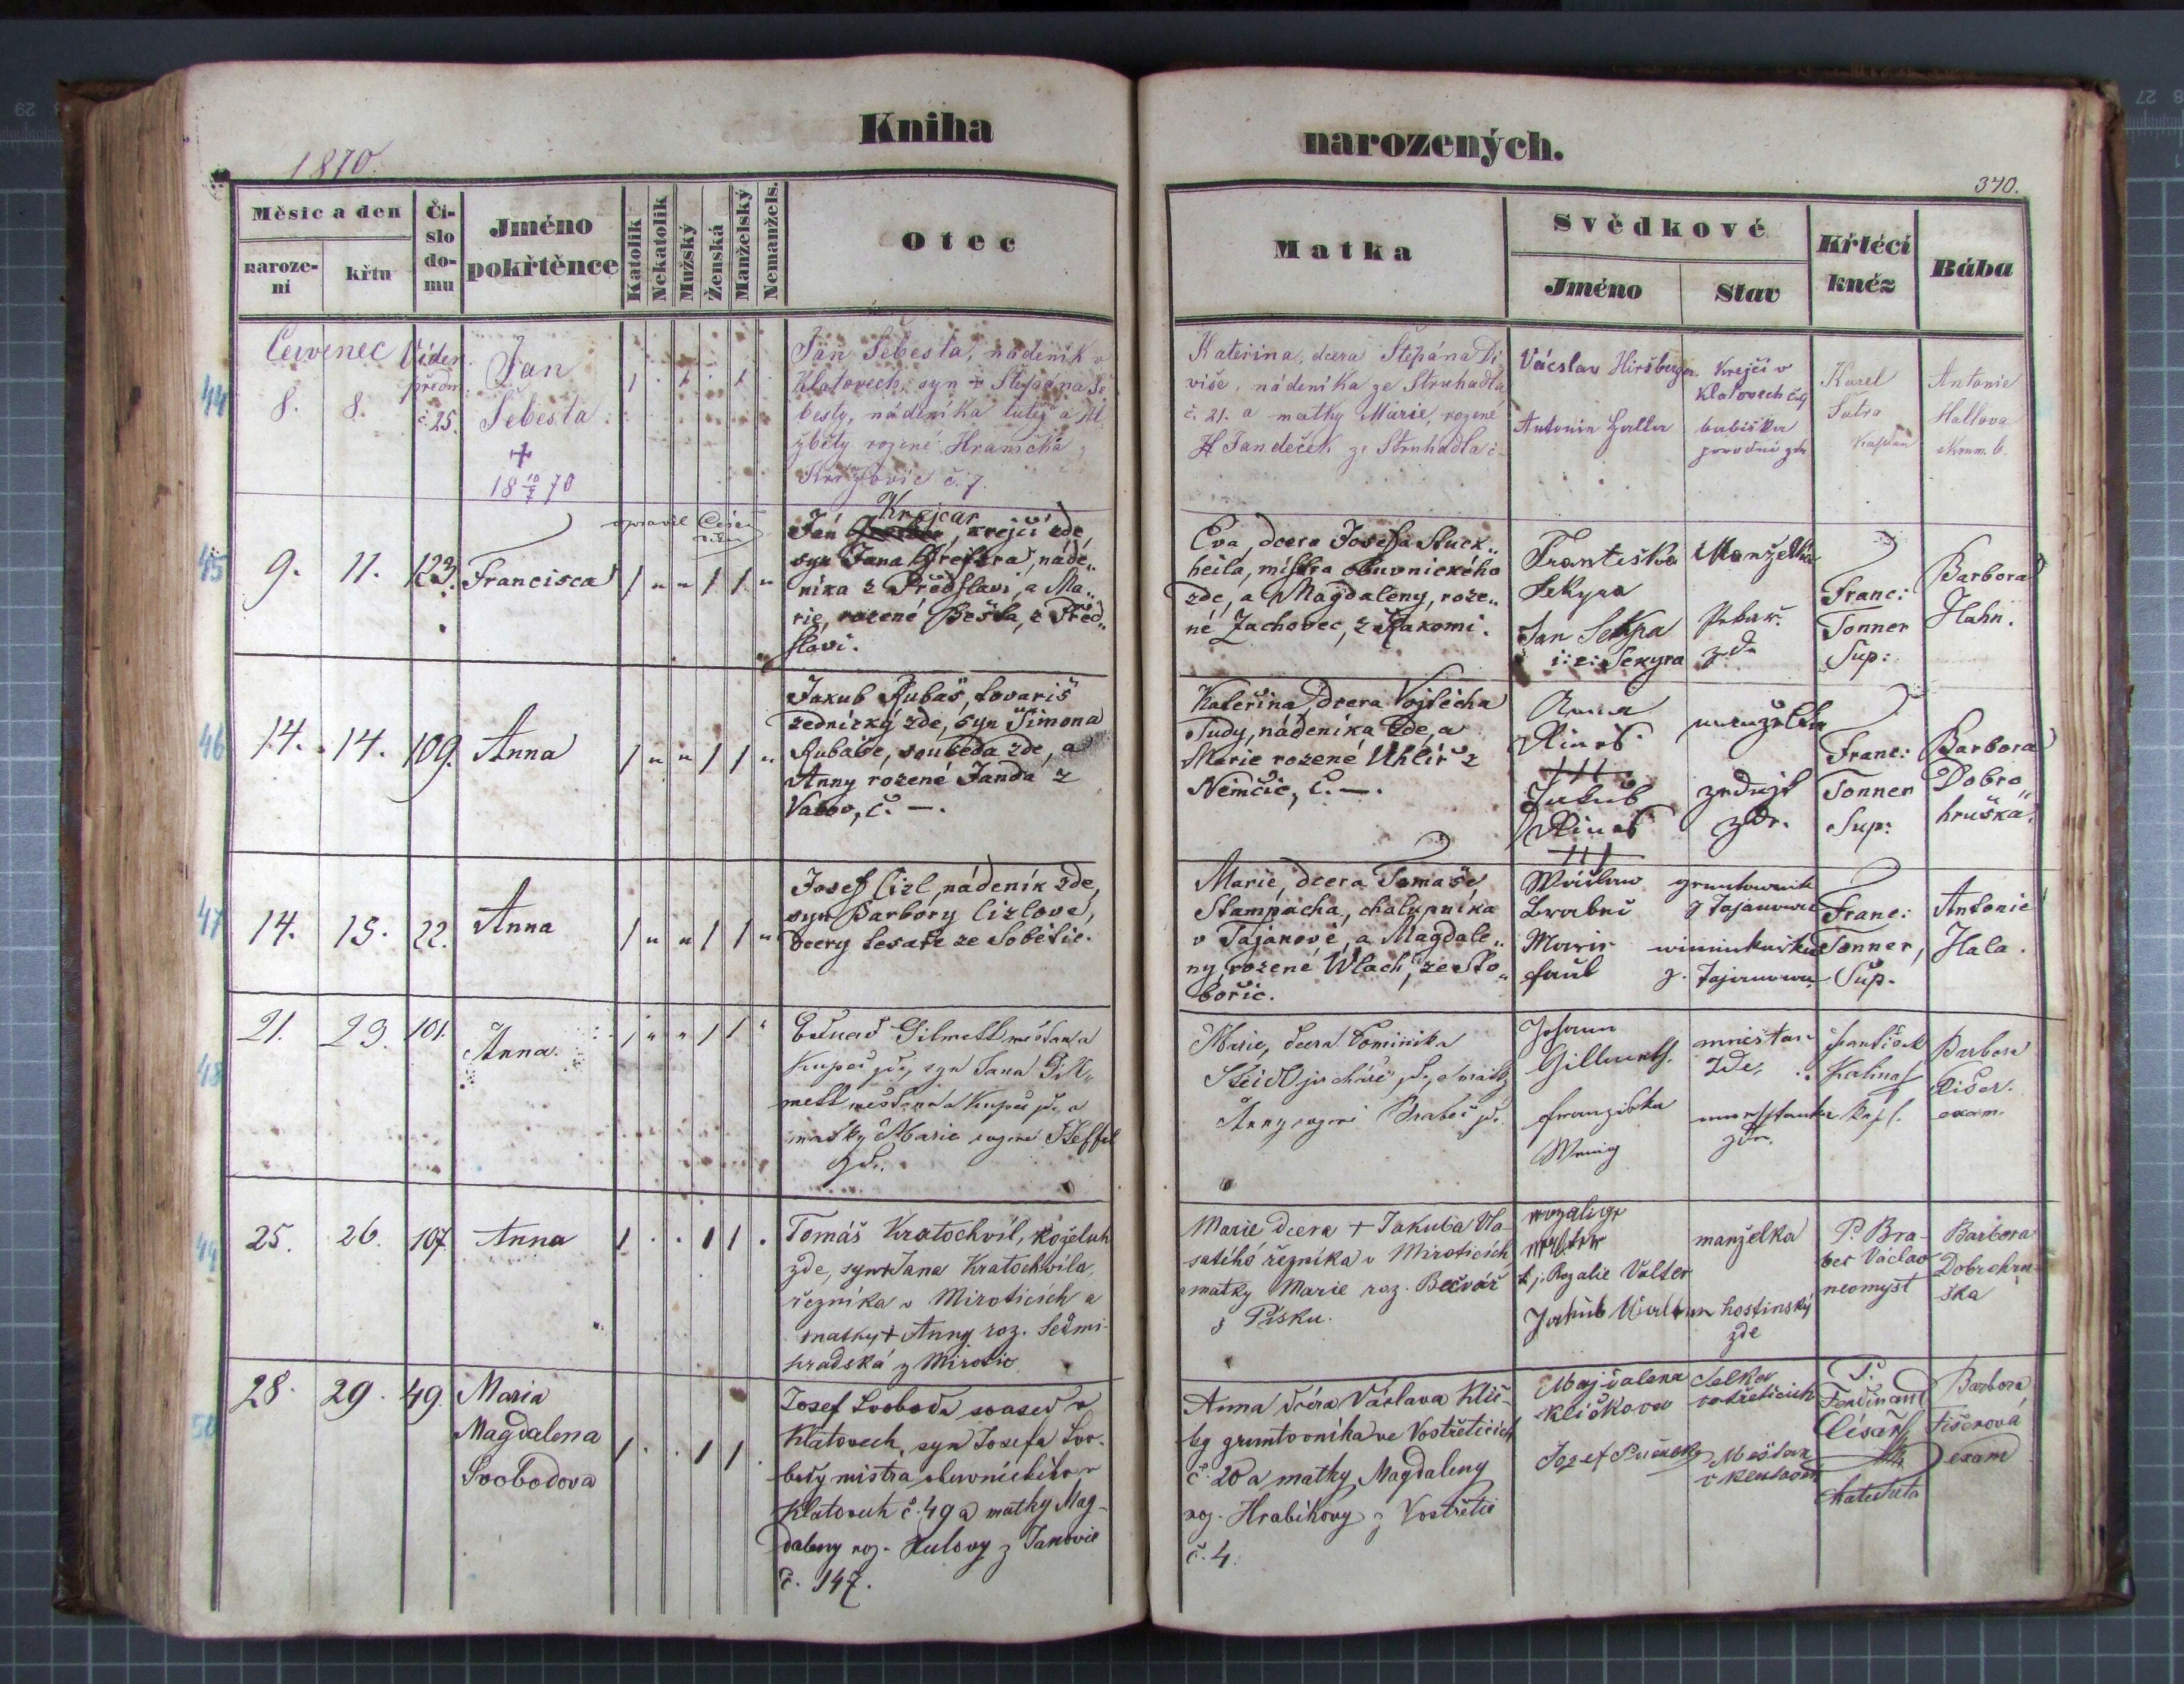 Kniha
narozených.
1870.
370.
Měsíc a den
naroze-
ní
křtu
Čí-
slo
do-
mu
Jméno
pokřtěnce
Katolík
Nekatolík
Mužský
Ženská
Manželský
Nemanžels.
Otec
Matka
Svědkové
Jméno
Stav
Křtící
kněz
Bába
44
Červenec
8.
8.
Víden.
předm.
č. 25.
Jan
Šebesta
+
18 10/7 70
Jan Šebesta, nádeník v
Klatovech, syn Štěpána Še
besty, nádeníka tutéž a Al
žběty rozené Hranička z
č. 7.
Kateřina, dcera Štěpána Di
više, nádeníka ze Struhadla
č. 21. a matky Marie, rozené
Jandeček ze Struhadla č.
Václav Hiršberger
Antonie Halla
Krejčí v
Klatovech č. 9
babička
Karel
Šatra
Kaplan
Antonie
Hallova
zkoum. b.
45
9.
11.
123.
Francisca
opravil
Krejcar
Jan, krejčí zde,
syn Jana, náde„
níka z Předslavi, a Ma„
rie, rozené Bešta, z Před„
slavi.
Eva, dcera Josefa Stuck„
heila, mistra obuvnického
zde, a Magdaleny, roze„
né Zachovec, z Lakomi.
Františka
Sekyra
Jan Sekyra
i: e: Sekyra
Manželka
Pekař.
zde
Franc:
Tonner
Sup:
Barbora
Hahn.
46
14.
14.
109.
Anna
Jakub Rubaš, tovariš
zednický zde, syn Šimona
Rubaše, souseda zde, a
Anny rozené Janda z
Vacov, č. —.
Kateřina, dcera Vojtěcha
Tudy, nádeníka zde, a
Marie rozené Uhlíř z
Němčic, č. —.
Anna
+++
Jakub
+++
manželka
zde.
Franc:
Tonner
Sup:
Barbora
Dobro„
hruška.
47
14.
15.
22.
Anna
Josef Cizl, nádeník zde,
syn Barbory Cizlové,
dcery tesaře ze Sobětic.
Marie, dcera Tomaše
Stampacha, chalupníka
v Tajanově, a Magdale„
ny, rozené Wlach, ze Sto„
bořic.
Wácław
Marie
gruntownik
z Tajanowa
z. Tajanowa
Franc:
Tonner,
Sup.
Antonie
Hala.
48
21.
23.
101.
Anna.
Eduad Gilmett měšťan a
kupec zde, syn Jana Gill„
mett měšťana a kupce zde a
matky Marie rozené Steffel
zde.
Marie, dcera Dominika
Steidl zde, a matky
Anny rozené Brabec zde.
Johann
Gillmett.
Franziska
zde,
zde.
František
Kalina
Kapl.
Barbora
Fišer.
exam.
49
25.
26.
107.
Anna
Tomáš Kratochvíl, koželuh
zde, syn + Jana Kratochwíla,
řezníka v Miroticích a
matky + Anny roz. Sedmi-
hradská z Mirotic
Marie dcera + Jakuba Vla-
satého řezníka v Miroticích,
matky Marie roz. Bečvář
z Písku.
t. j. Rozalie Valter
Jakub Walter
manželka
hostinský
zde
P. Bra-
bec Václav
neomyst
Barbora
Dobrohru-
ška
50
28.
29.
49.
Maria
Magdalena
Svobodova
Josef Svoboda soused v
Klatovech, syn Josefa Svo-
body mistra obuvnického v
Klatovech č. 49 a matky Mag-
daleny roz. Hulovy z Janovic
č. 147.
Anna dcera Václava Klič-
ky gruntovníka ve Vostřeticích
č. 20 a matky Magdaleny
roz. Hrabíkovy z Vostřetic
č. 4.
Majdalena
Kličkova
Jozef
Selka
Měštan
P.
Ferdinand
Císař
Barbora
Fišerová
exam